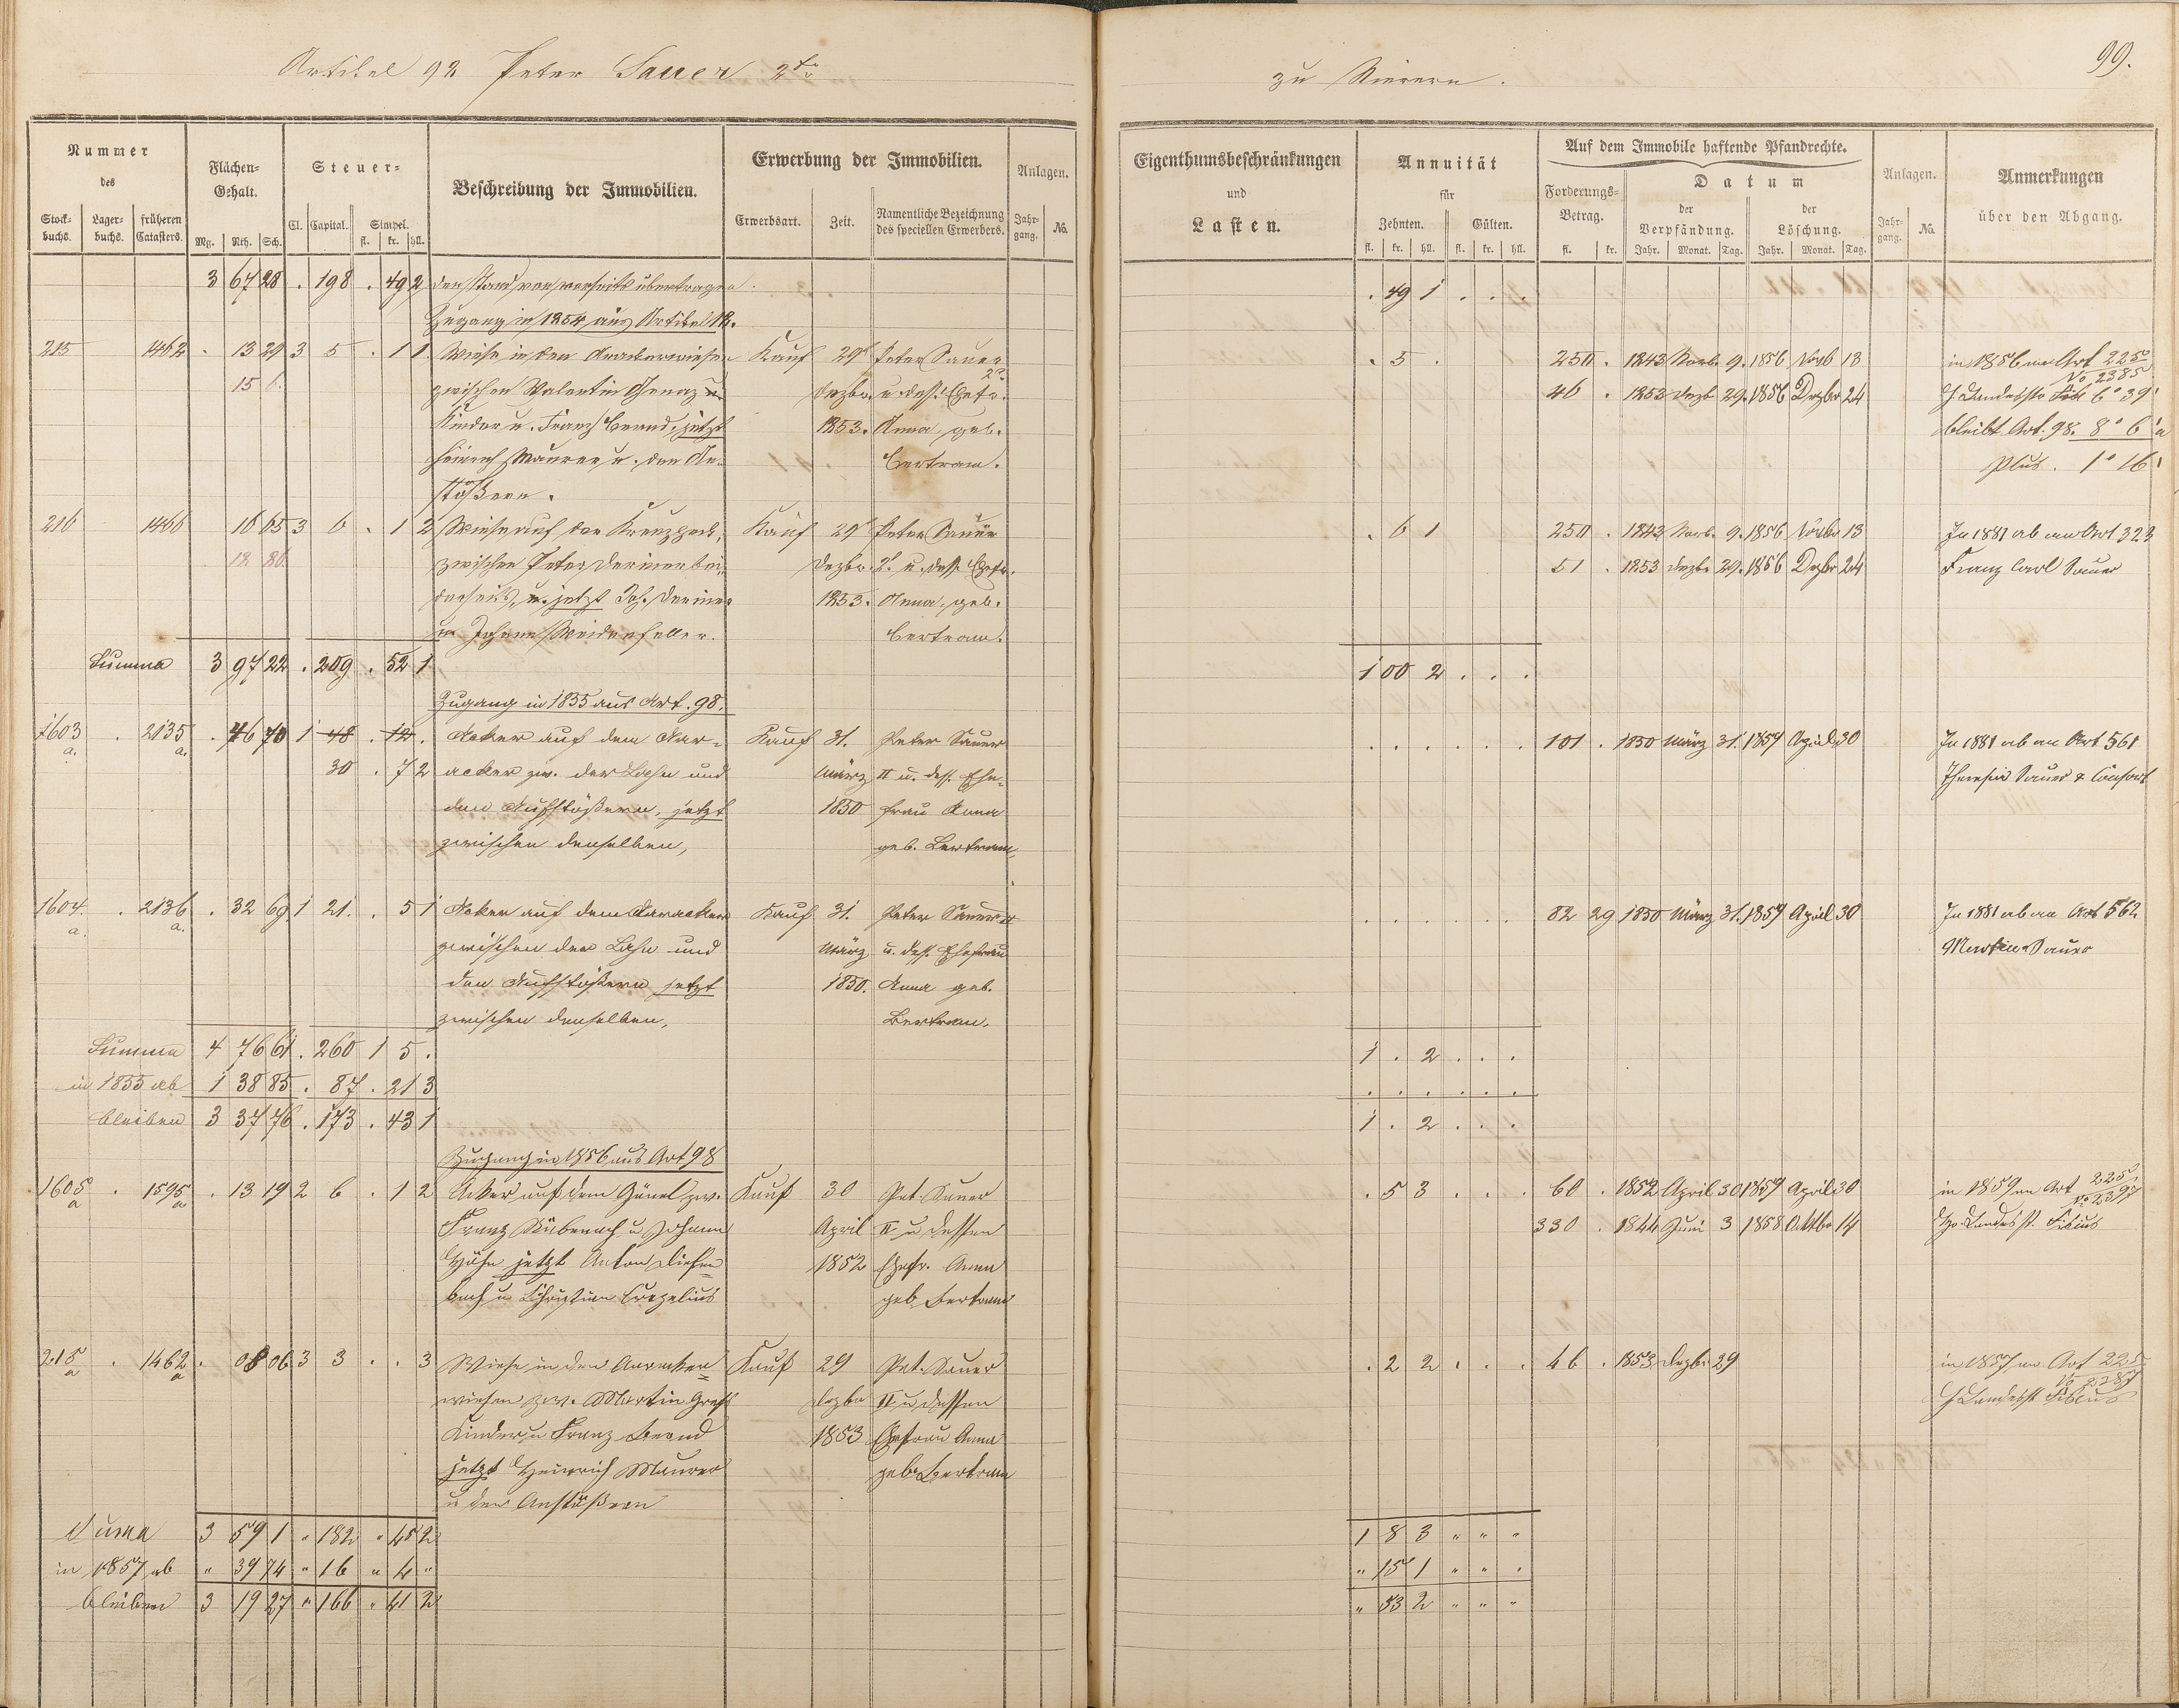 Artikel 98 Peter Sauer 2te
zu Nievern.
99.
Nummer des
Stockbuchs. Lagerbuchs. früheren Catasters.
Flächen-Gehalt.
Mg. Rth. Sch.
Steuer-
Cl. Capital. Simpel.
fl. kr. hll.
Beschreibung der Immobilien.
Erwerbung der Immobilien.
Erwerbsart. Zeit. Namentliche Bezeichnung des speciellen Erwerbers.
Anlagen.
Jahrgang. No.
Eigenthumsbeschränkungen
und
Lasten.
Annuität
für
Zehnten. Gülten.
fl. kr. hll. fl. kr. hll.
Auf dem Immobile haftende Pfandrechte.
Forderungs-Betrag.
fl. kr.
Datum
der Verpfändung. der Löschung.
Jahr. Monat. Tag. Jahr. Monat. Tag.
Anlagen.
Jahrgang. No.
Anmerkungen
über den Abgang.
3 67 28 . 198 . 49 2 übertragen . 49 1 . . .
Zugang in 1854 aus Artikel
215 1462 . 13 29 3 5 . 1 1 Wiese in den Kauf 29t Peter Sauer . 5 . 250 . 1843 Novb. 9. 1856 Novb 13 in 1856 an Art 225
15 6. zwischen Valentin u. Dezbr. u. dess. Ehefr. 46 . 1853 Dezb 29. 1856 Dezbr 24 No 2385
Kinder u. Franz Bernd, jetzt 1853. Anna geb. bleibt Art. 98. 8° 6' a
Heinrich Maurer u. den An- Bertram. plus. 1° 16'
stößern.
216 1466 16 65 3 6 . 1 2 Wiese auf der Kauf 29t Peter Sauer . 6 1 250 . 1843 Novb. 9. 1856 Novbr 13 In 1881 ab an Art 323
18 86. zwischen Peter Dezbr. 2t. u. dess. Ehefr. 51 . 1853 Dezbr 29. 1856 Dezbr 24 Franz Carl Sauer
u. jetzt Joh. 1853. Anna, geb.
u. Johann Weidenfeller. Bertram.
Summa 3 97 22 . 209 . 52 1 1 00 2 . . .
Zugang in 1855 aus Art. 98.
1603 a. . 2135 a. . 46 70 1 48 . 12 . Acker auf dem Aar- Kauf 31. Peter Sauer . . . . . . 101 . 1850 März 31. 1857 April 30 In 1881 ab an Art 561
30 . 7 2 acker zw. der Lahn und März II u. dess. Ehe- Theresia Sauer & Consort
den Aufstößern, jetzt 1850 frau Anna
zwischen denselben, geb. Bertram,
1604. a. . 2136 a. . 32 69 1 21. . 5 1 Acker auf dem Aaracker Kauf 31. Peter Sauer II . . . . . . 82 29 1850 März 31. 1857 April 30 In 1881 ab an Art 562
zwischen der Lahn und März u. dess. Ehefrau Martin Sauer
den Aufstößern jetzt 1850. Anna geb.
zwischen denselben, Bertram.
Summa 4 76 61 . 260 1 5 . 1 . 2 . . .
in 1855 ab 1 38 85 . 87 . 21 3 . . . . . .
bleiben 3 37 76 . 173 . 43 1 1 . 2 . . .
Zugang in 1856 aus Art 98
1605 a . 1595 a . 13 19 2 6 . 1 2 Acker auf dem zw. Kauf 30 Pet. Sauer . 5 3 . . . 60 . 1852 April 30 1859 April 30 in 1859 an Art 225
Franz u Johann April II u dessen 330 . 1844 Juni 3 1858 Oktbr 14 No 2397
Höhn jetzt Anton Diefen= 1852 Ehefr. Anna
bach u Christian geb. Bertram
215 a . 1462 a . 08 06 3 3 . . 3 Wiese in den Kauf 29 Pet. Sauer . 2 2 . . . 46 . 1853 Dezbr 29 in 1857 an Art 225
wiesen zw. Martin Dezbr II u dessen No 2287
Kinder u Franz Bernd 1853 Ehefrau Anna
jetzt Heinrich Maurer geb. Bertram
u den Anstößern
Summa 3 59 1 " 182 " 45 2 1 8 3 " " "
in 1857 ab " 39 74 " 16 " 4 " " 15 1 " " "
bleiben 3 19 27 " 166 " 41 2 " 53 2 " " "